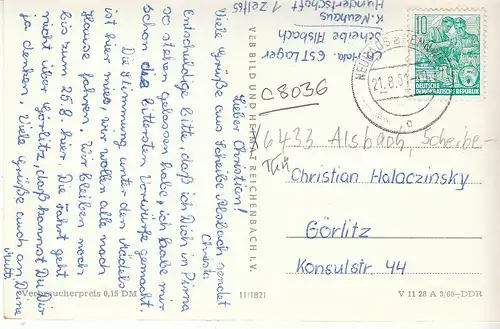 Lieber Christian!
Viele Grüße aus Scheibe Alsbach sendet
Christa
Entschuldige bitte, daß ich Dich in Pirna
so stehen gelassen habe, ich habe mir
schon die bittersten Vorwürfe gemacht.
Die Stimmung unter den Mädels
ist hier mies, wir wollen alle nach
Hause fahren. Wir bleiben noch
bis zum 25.8. hier. Die Fahrt geht
nicht über Görlitz, daß kannst Du Dir
ja denken. Viele Grüße auch an Deine
Mutti
Verbraucherpreis 0,15 DM
VEB BILD UND HEIMAT REICHENBACH I. V.
11/1821
C8036
GST Lager
Scheibe Alsbach
K. Neuhaus
Hundertschaft 1 Zelt 65
NEUHAUS
21.8.61
10
DEUTSCHE
DEMOKRATISCHE REPUBLIK
6433 Alsbach, Scheibe-
Christian Halaczinsky
Görlitz
Konsulstr. 44
V 11 28 A 3/60 DDR